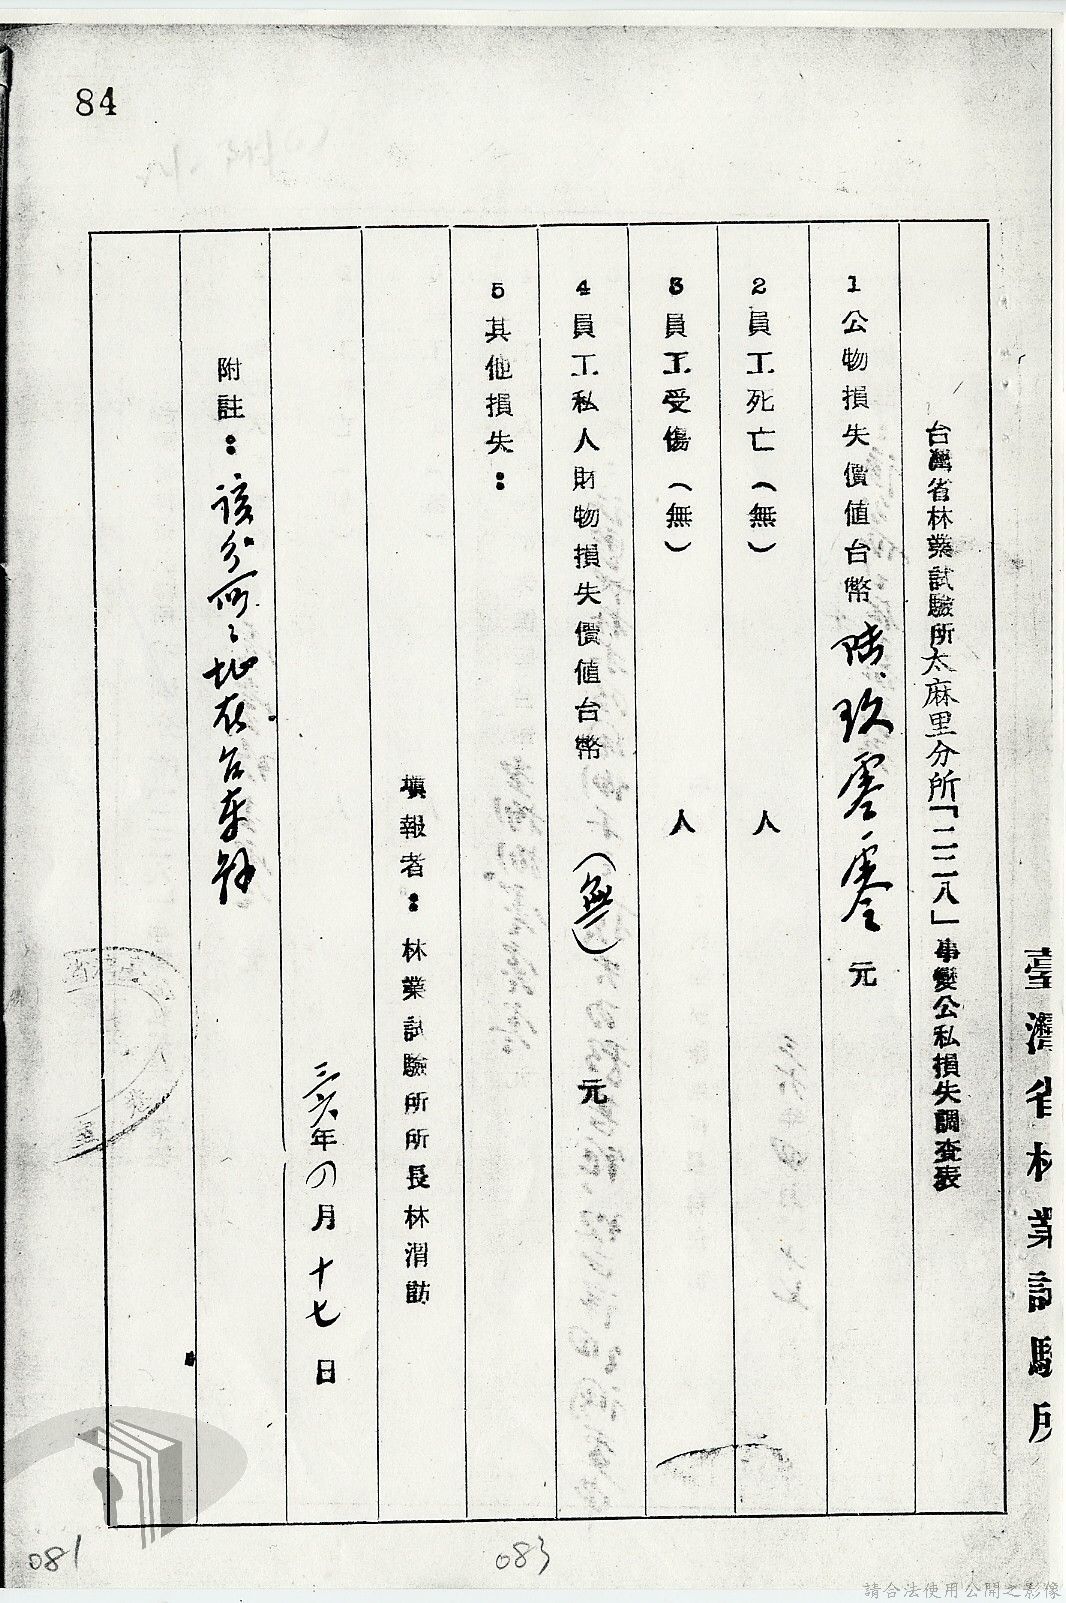 84
臺灣省林業試驗所
台灣省林業試驗所太麻里分所「二二八」事變公私損失調查表
1公物損失價值台幣陸玖零零元
2員工死亡(無) 人
3員工受傷(無) 人
4員工私人財物損失價值台幣(無)元
5其他損失:
填報者:林業試驗所所長林渭訪
三六年四月十七日
附註:該分所所地在台東縣
081
083
請合法使用公開之影像